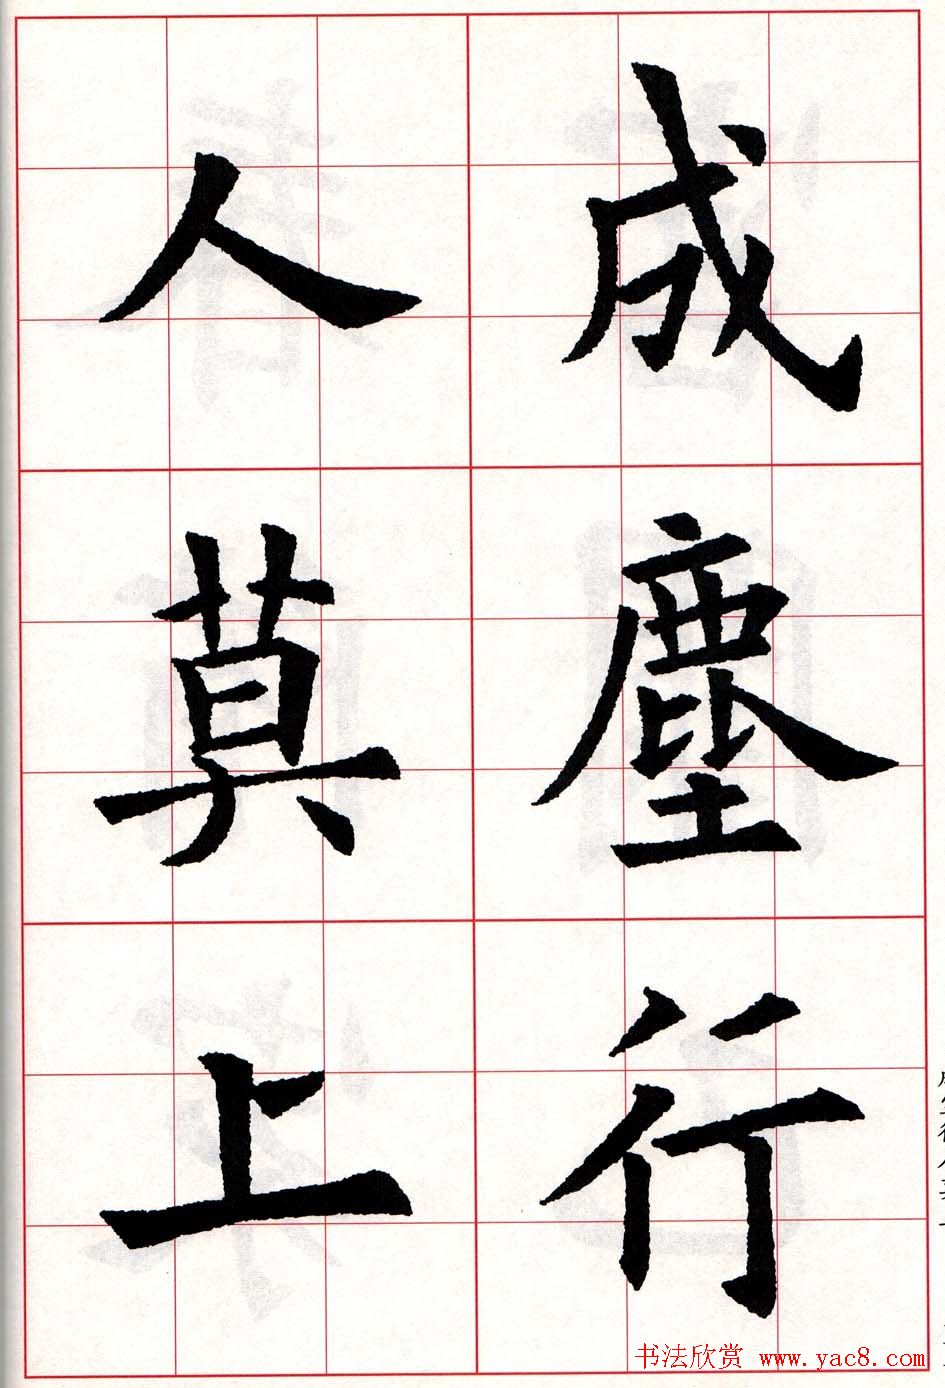 成塵行
人莫上
书法欣赏 www.yac8.com